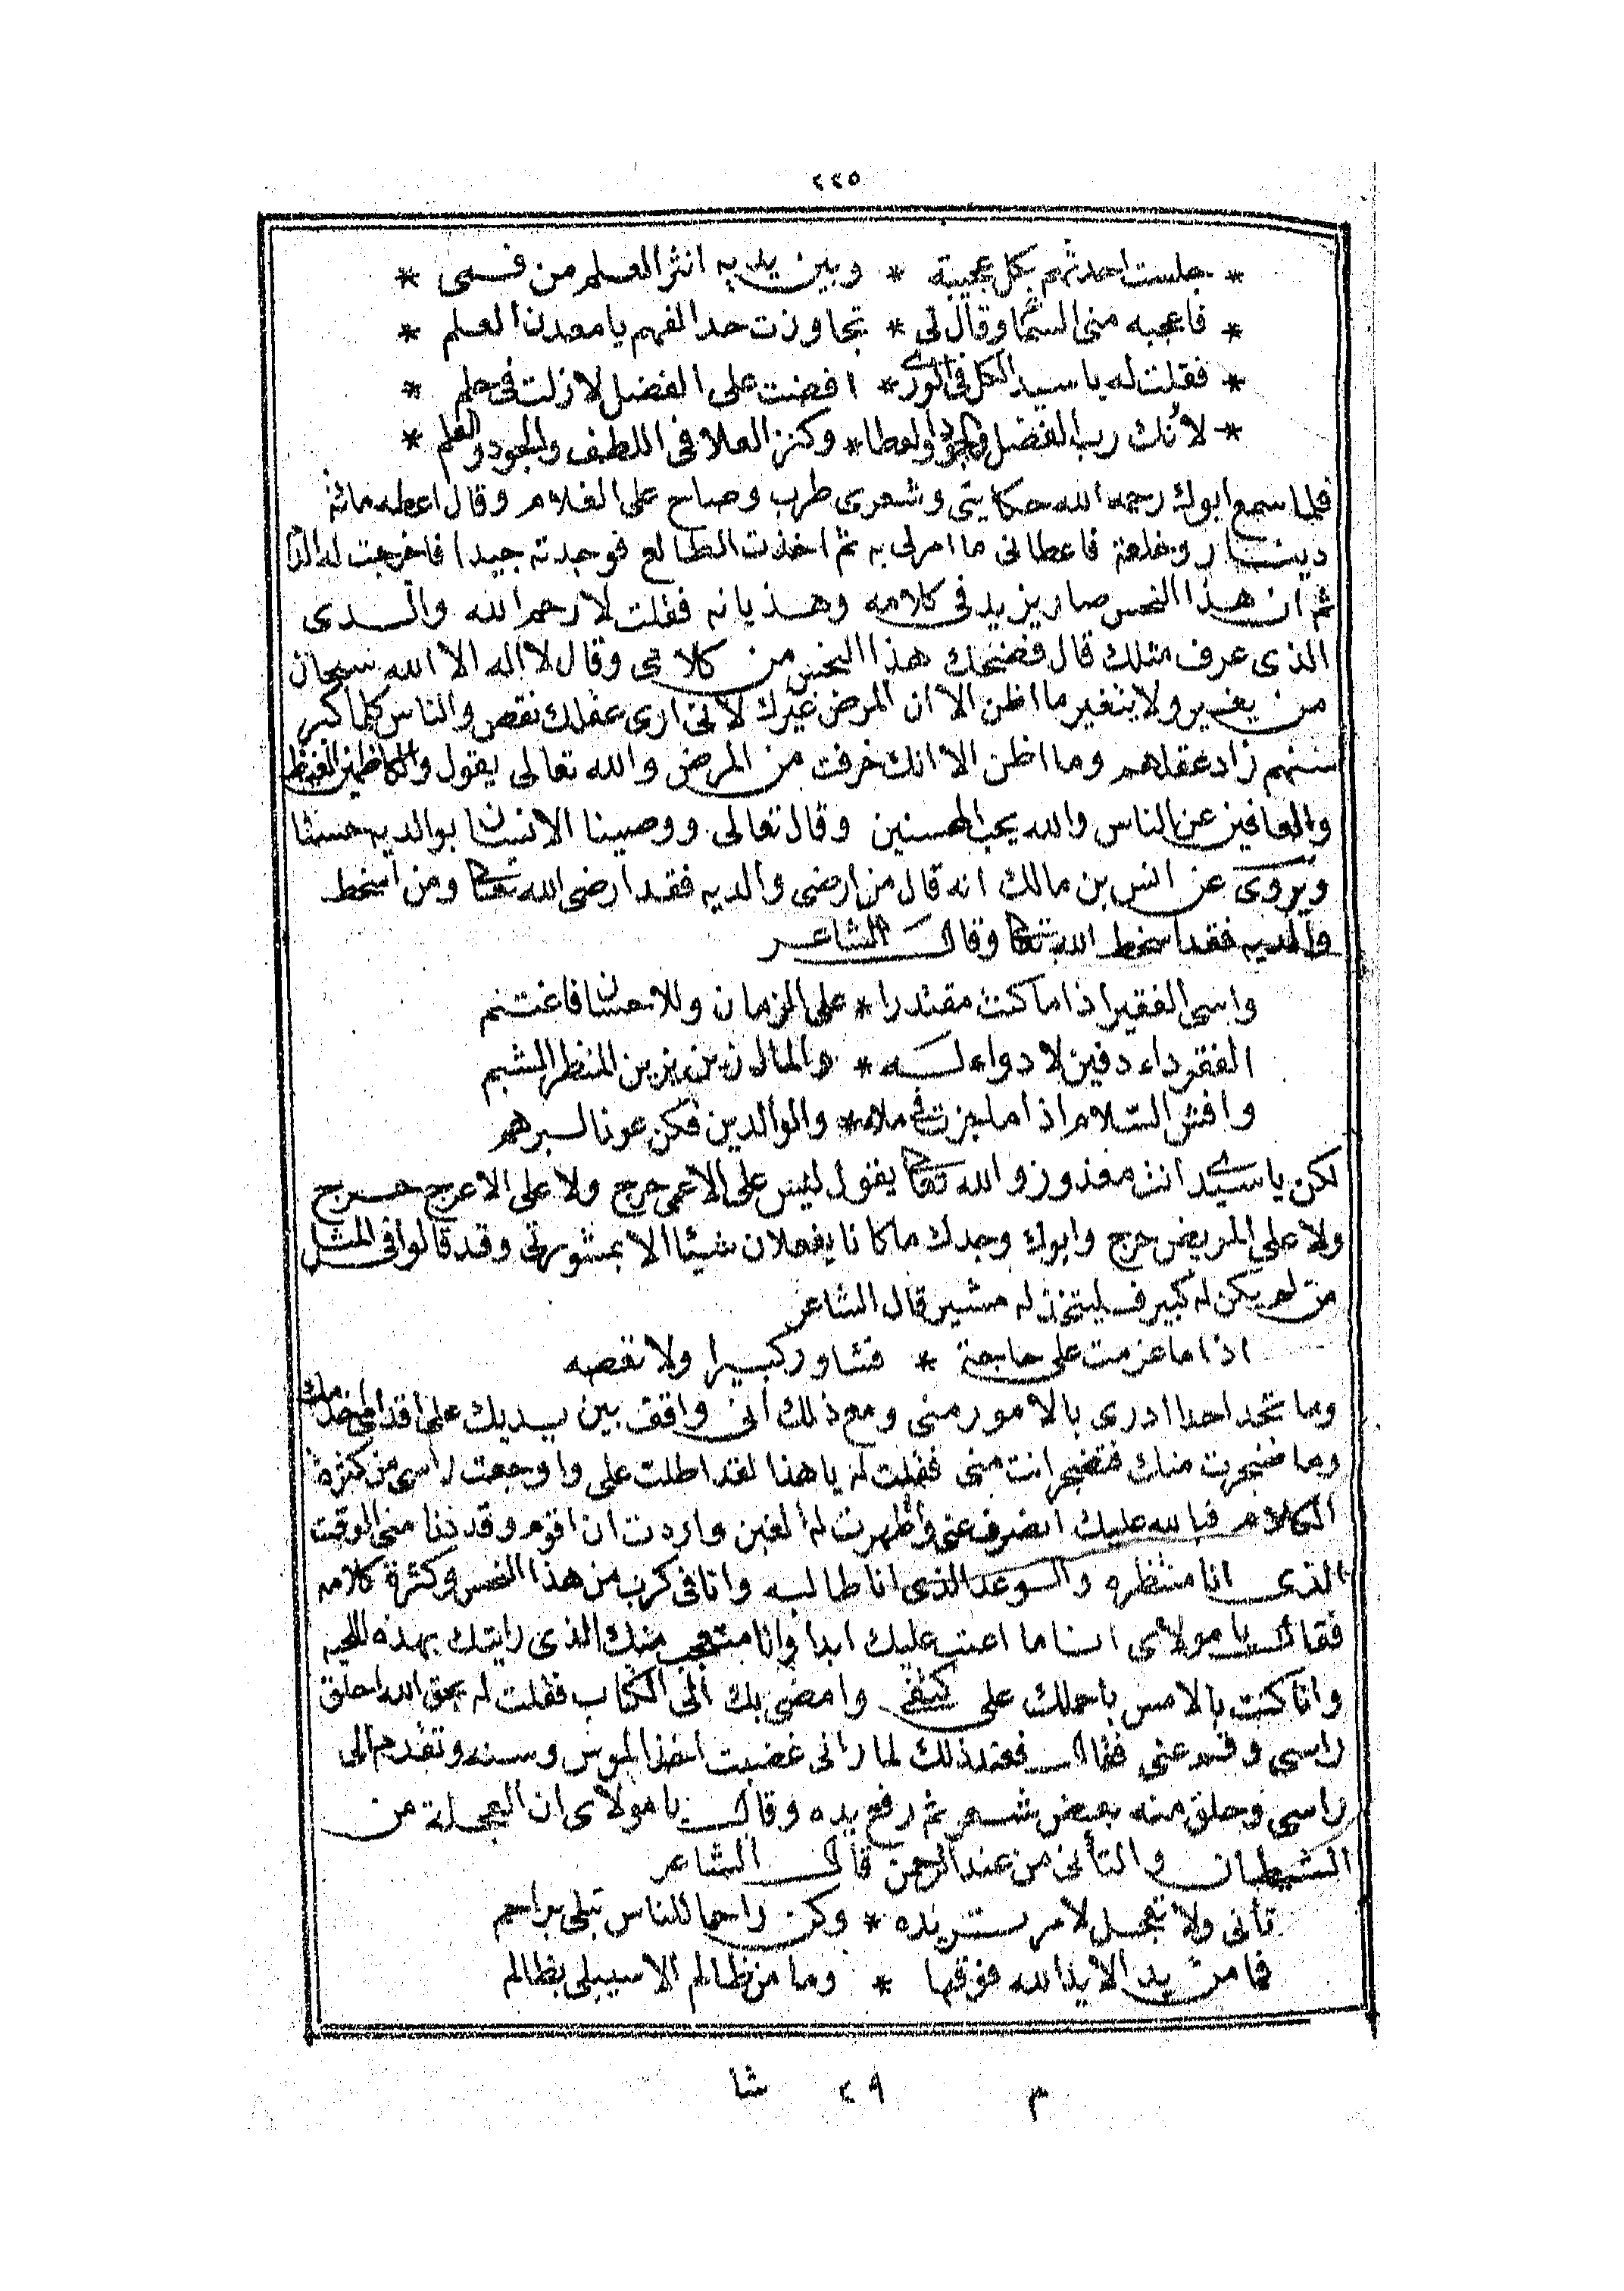 ٢٢٥
* جلست احدثهم بكل عجيبة * وبين يديه انثر العلم من فمى *
* فاعجبه منى السما وقال لى * تجاوزت حد الفهم يا معدن العلم *
* فقلت له يا سيد الكل فى الورى * افضت على الفضل لا زلت فى حلم *
* لانك رب الفضل والجود والعطا * وكنز العلا فى اللطف والجود والعلم *
فلما سمع ابوك رحمه الله حكايتى وشعرى طرب وصاح على الغلام وقال اعطه مائة
دينار وخلعة فاعطانى ما امر لى به ثم اخذت الطالع فوجدته جيدا فاخرجت له الدم
ثم ان هذا النحس صار يزيد فى كلامه وهذيانه فقلت لا رحم الله والدى
الذى عرف مثلك قال فضحك هذا النحس من كلامى وقال لا اله الا الله سبحان
من يغير ولا يتغير ما اظن الا ان المرض غيرك لانى ارى عقلك نقص والناس كلما كبر
سنهم زاد عقلهم وما اظن الا انك خرفت من المرض والله تعالى يقول والكاظمين الغيظ
والعافين عن الناس والله يحب المحسنين وقال تعالى ووصينا الانسان بوالديه حسنا
ويروى عن انس بن مالك انه قال من ارضى والديه فقد ارضى الله تعالى ومن اسخط
والديه فقد اسخط الله تعالى وقال الشاعر
واسى الفقير اذا ما كنت مقتدرا * على الزمان وللاحسان فاغتنم
الفقر داء دفين لا دواء له * والمال زين يزين المنظر الشبم
وافش السلام اذا ما جزت فى ملاء * والوالدين فكن عونا لبرهم
لكن يا سيدى انت معذور والله تعالى يقول ليس على الاعمى حرج ولا على الاعرج حرج
ولا على المريض حرج وابوك وجدك ما كانا يفعلان شيئا الا بمشورتى وقد قالوا فى المثل
من لم يكن له كبير فليتخذ له مشير قال الشاعر
اذا ما عزمت على حاجة * فشاور كبيرا ولا تعصه
وما تجد احدا ادرى بالامور منى ومع ذلك انى واقف بين يديك على اقدامى اخدمك
وما ضجرت منك فتضجر انت منى فقلت له يا هذا لقد اطلت على واوجعت راسى من كثرة
الكلام فبالله عليك انصرف عنى واظهرت له الغبن واردت ان اقوم وقد دنا منى الوقت
الذى انا منتظره والوعد الذى انا طالبه وانا فى كرب من هذا النحس وكثرة كلامه
فقال يا مولاى انا ما اعتب عليك ابدا وانا متعجب منك الذى رايتك بهذه اللحيه
وانا كنت بالامس باحملك على كتفى وامضى بك الى الكتاب فقلت له بحق الله احلق
راسى وقم عنى فقال فعند ذلك لما رانى غضبت اخذ الموس وسنه وتقدم الى
راسى وحلق منه بعض شعر ثم رفع يده وقال يا مولاى ان العجلة من
الشيطان والتأنى من عند الرحمن قال الشاعر
تأنى ولا تعجل لامر تريده * وكن راحما للناس تبلى براحم
فما من يد الا يد الله فوقها * وما من ظالم الا سيبلى بظالم
م ٢٩ شا